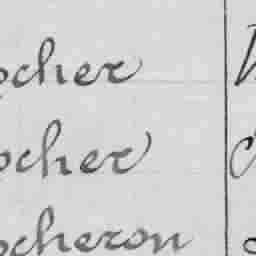 ocher
ocher
ocheron